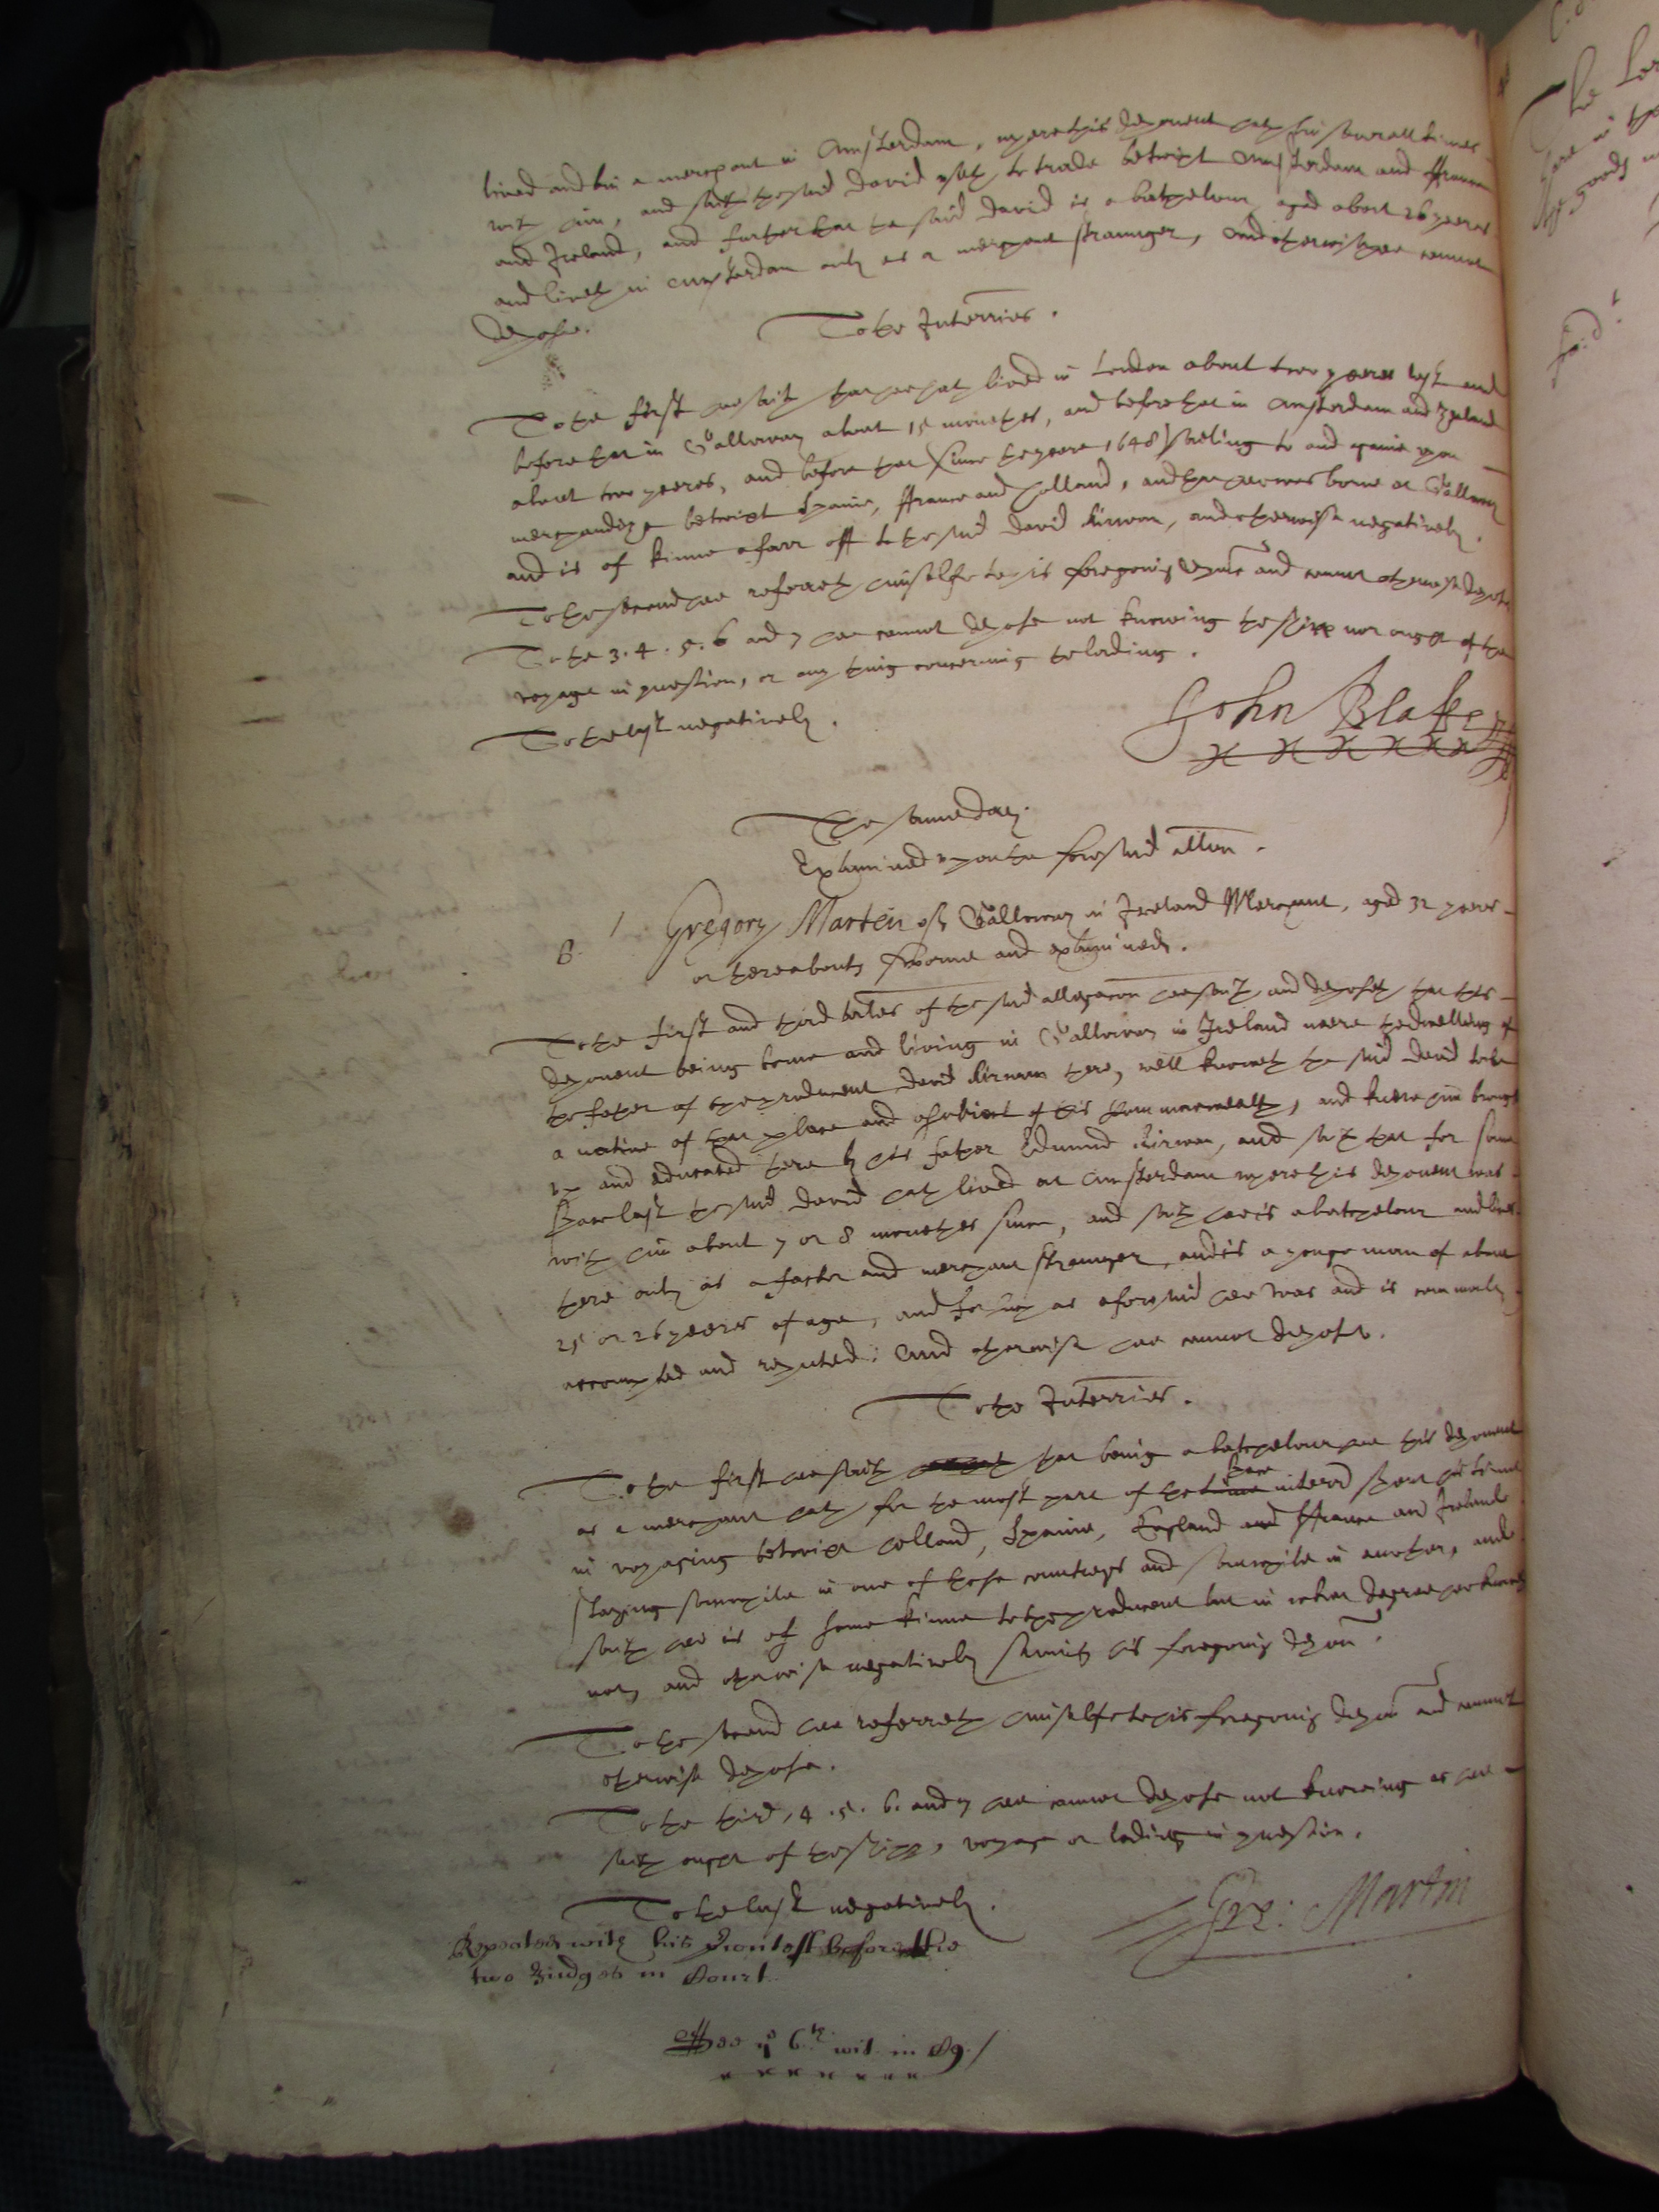 lived and bin a merchant in Amsterdam, where this deponent hath bin severall times
with him, and saith the said David useth to trade betwixt Amsterdam and ffrance
and Ireland, and further that the said David is a batchelour aged about 26 yeeres
and liveth in Amsterdam only as a merchant stranger, And otherwise hee cannot
depose.
To the Interries.
To the first hee saith that hee hath lived in London about two yeeres last and
before that in Galloway about 15 moneths, and before that in Amsterdam and Zeland
about two yeeres, and before that (since the yeere 1648) sailing to and againe upon
merchandize betwixt Spaine, ffrance and Holland, and that hee was borne at Galloway
and is of kinne afarr off to the said David Kirwan, and otherwise negatively.
To the second hee referreth himselfe to his foregoing deposn and cannot otherwise depose
To the 3. 4. 5. 6 and 7 hee cannot depose not knowing the shipp nor ought of the
voyage in question, or any thing concerning the lading.
To the last negatively.
John Blake
The same day.
Examined upon the foresaid allon.
B. 1 Gregory Martin of Galloway in Ireland Merchant, aged 32 yeeres
or thereabouts sworne and examined.
To the first and third articles of the said allegacon hee saith and deposeth that this
deponent being borne and living in Galloway in Ireland neere the dwelling of
the father of the producent David Kirwan there, well knoweth the said David to be
a native of that place and a subject of this Commonwealth, and knew him brought
up and educated there by his father Edmund Kirwan, and saith that for some
space last the said David hath lived at Amsterdam where this deponent was
with him about 7 or 8 moneths since, and saith hee is a batchelour and lives
there only as a factor and merchant stranger, and is a yonge man of about
25 or 26 yeeres of age, and for such as aforesaid hee was and is commonly
accompted and reputed: And otherwise hee cannot depose.
To the Interries.
To the first hee saith that being a batchelour hee this deponent
as a merchant hath for the most part of the time space interrd spent his time
in voyaging betwixt Holland, Spaine, England and ffrance and Ireland
staying somewhile in one of those countreys and somewhile in another, and
saith hee is of some kinne to the producent but in what degree hee knoweth
not, and otherwise negatively saving his foregoing deposn.
To the second hee referreth himselfe to his foregoing deposn and cannot
otherwise depose.
To the third, 4. 5. 6. and 7 hee cannot depose not knowing as hee
saith ought of the shipp, voyage or lading in question.
To the last negatively.
Gre: Martin
Repeated with his Contest before the
two Judges in Court.
See ye 6th wit. in